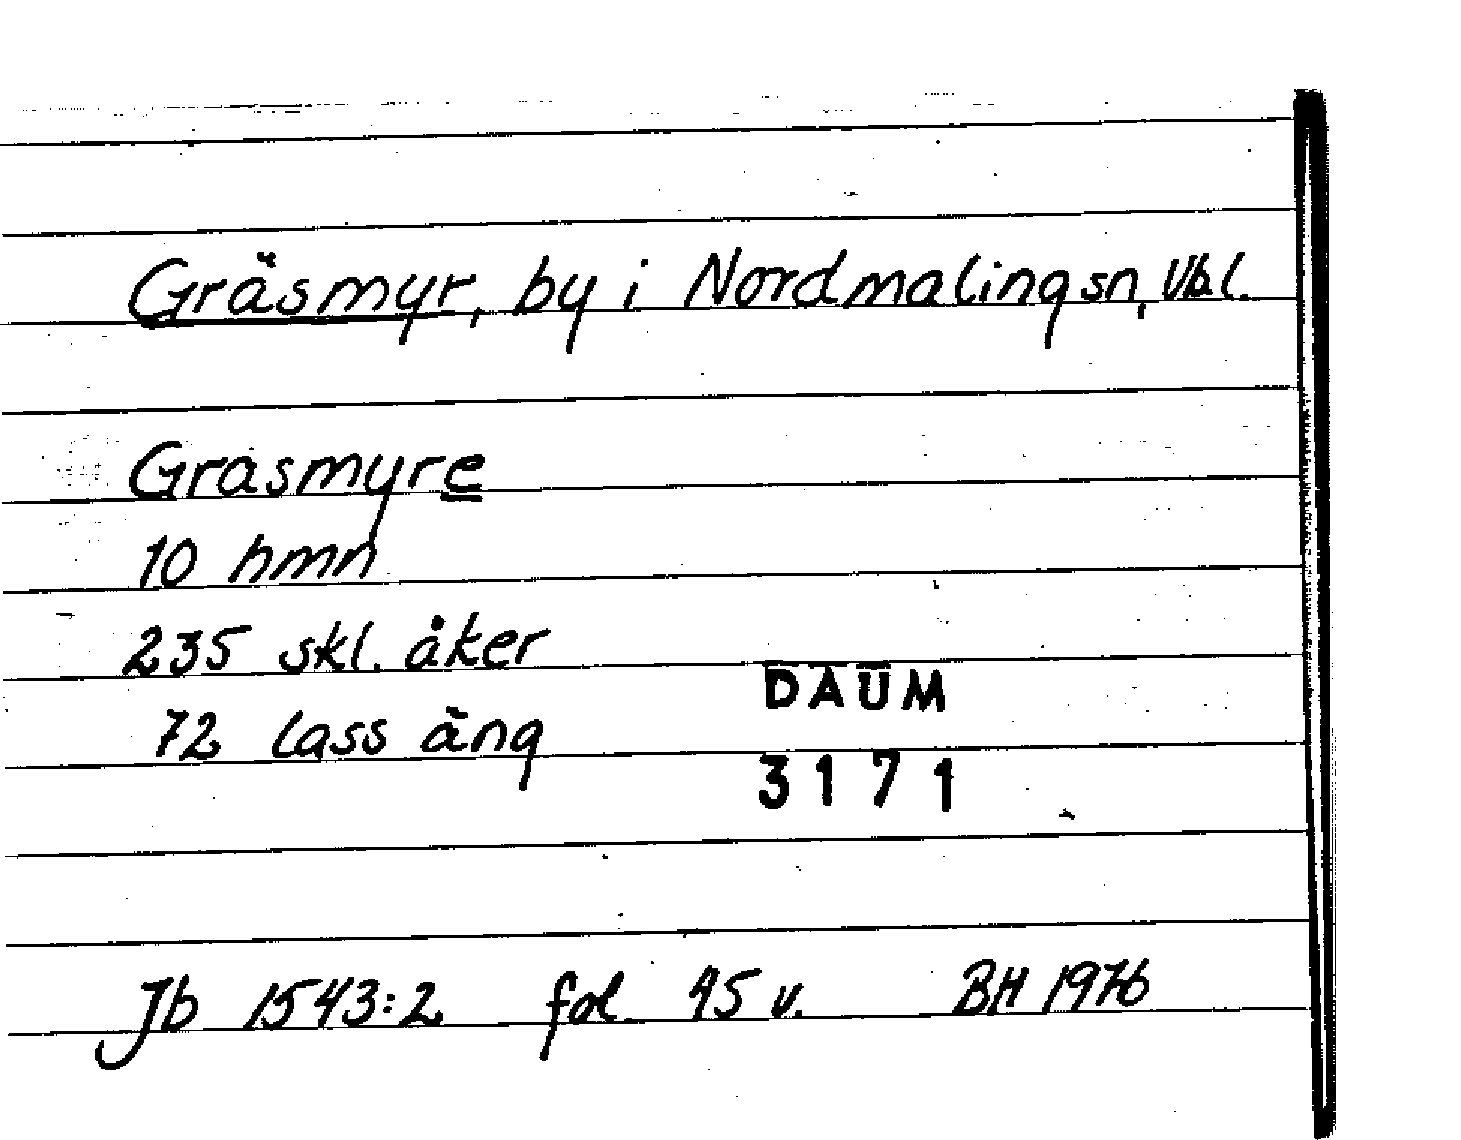 Gräsmyr, by i Nordmaling sn, Vbl.
Grasmyre
10 hmn
235 skl. åker
72 lass äng
DAUM
3171
Jb 1543:2 fol. 45 v. BH 1976